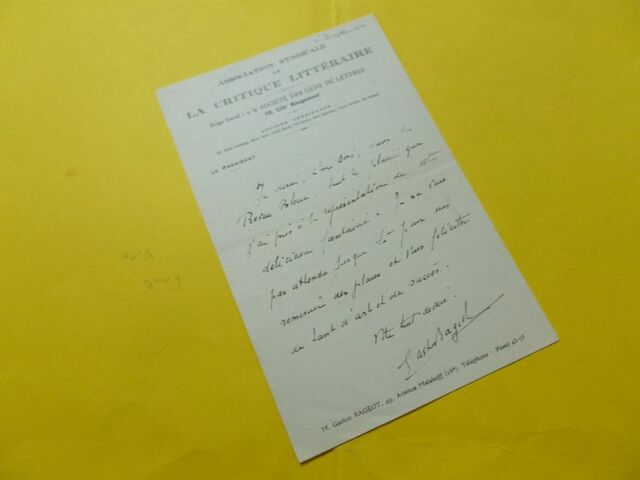 ASSOCIATION SYNDICALE
DE
LA CRITIQUE LITTÉRAIRE
Siège Social : à la SOCIÉTÉ DES GENS DE LETTRES
38, Cité Rougemont
ANCIENS PRÉSIDENTS
LE PRÉSIDENT
Je dirai, dans la
Revue Bleue, tout le plaisir que
j'ai pris à la représentation de votre
délicieuse fantaisie. Je ne veux
pas attendre jusque là pour vous
remercier des places et vous féliciter
de tant d'art et de succès.
Votre tout dévoué.
Gaston Rageot
M. Gaston RAGEOT, 49, Avenue Malakoff (16e). Téléphone : Passy